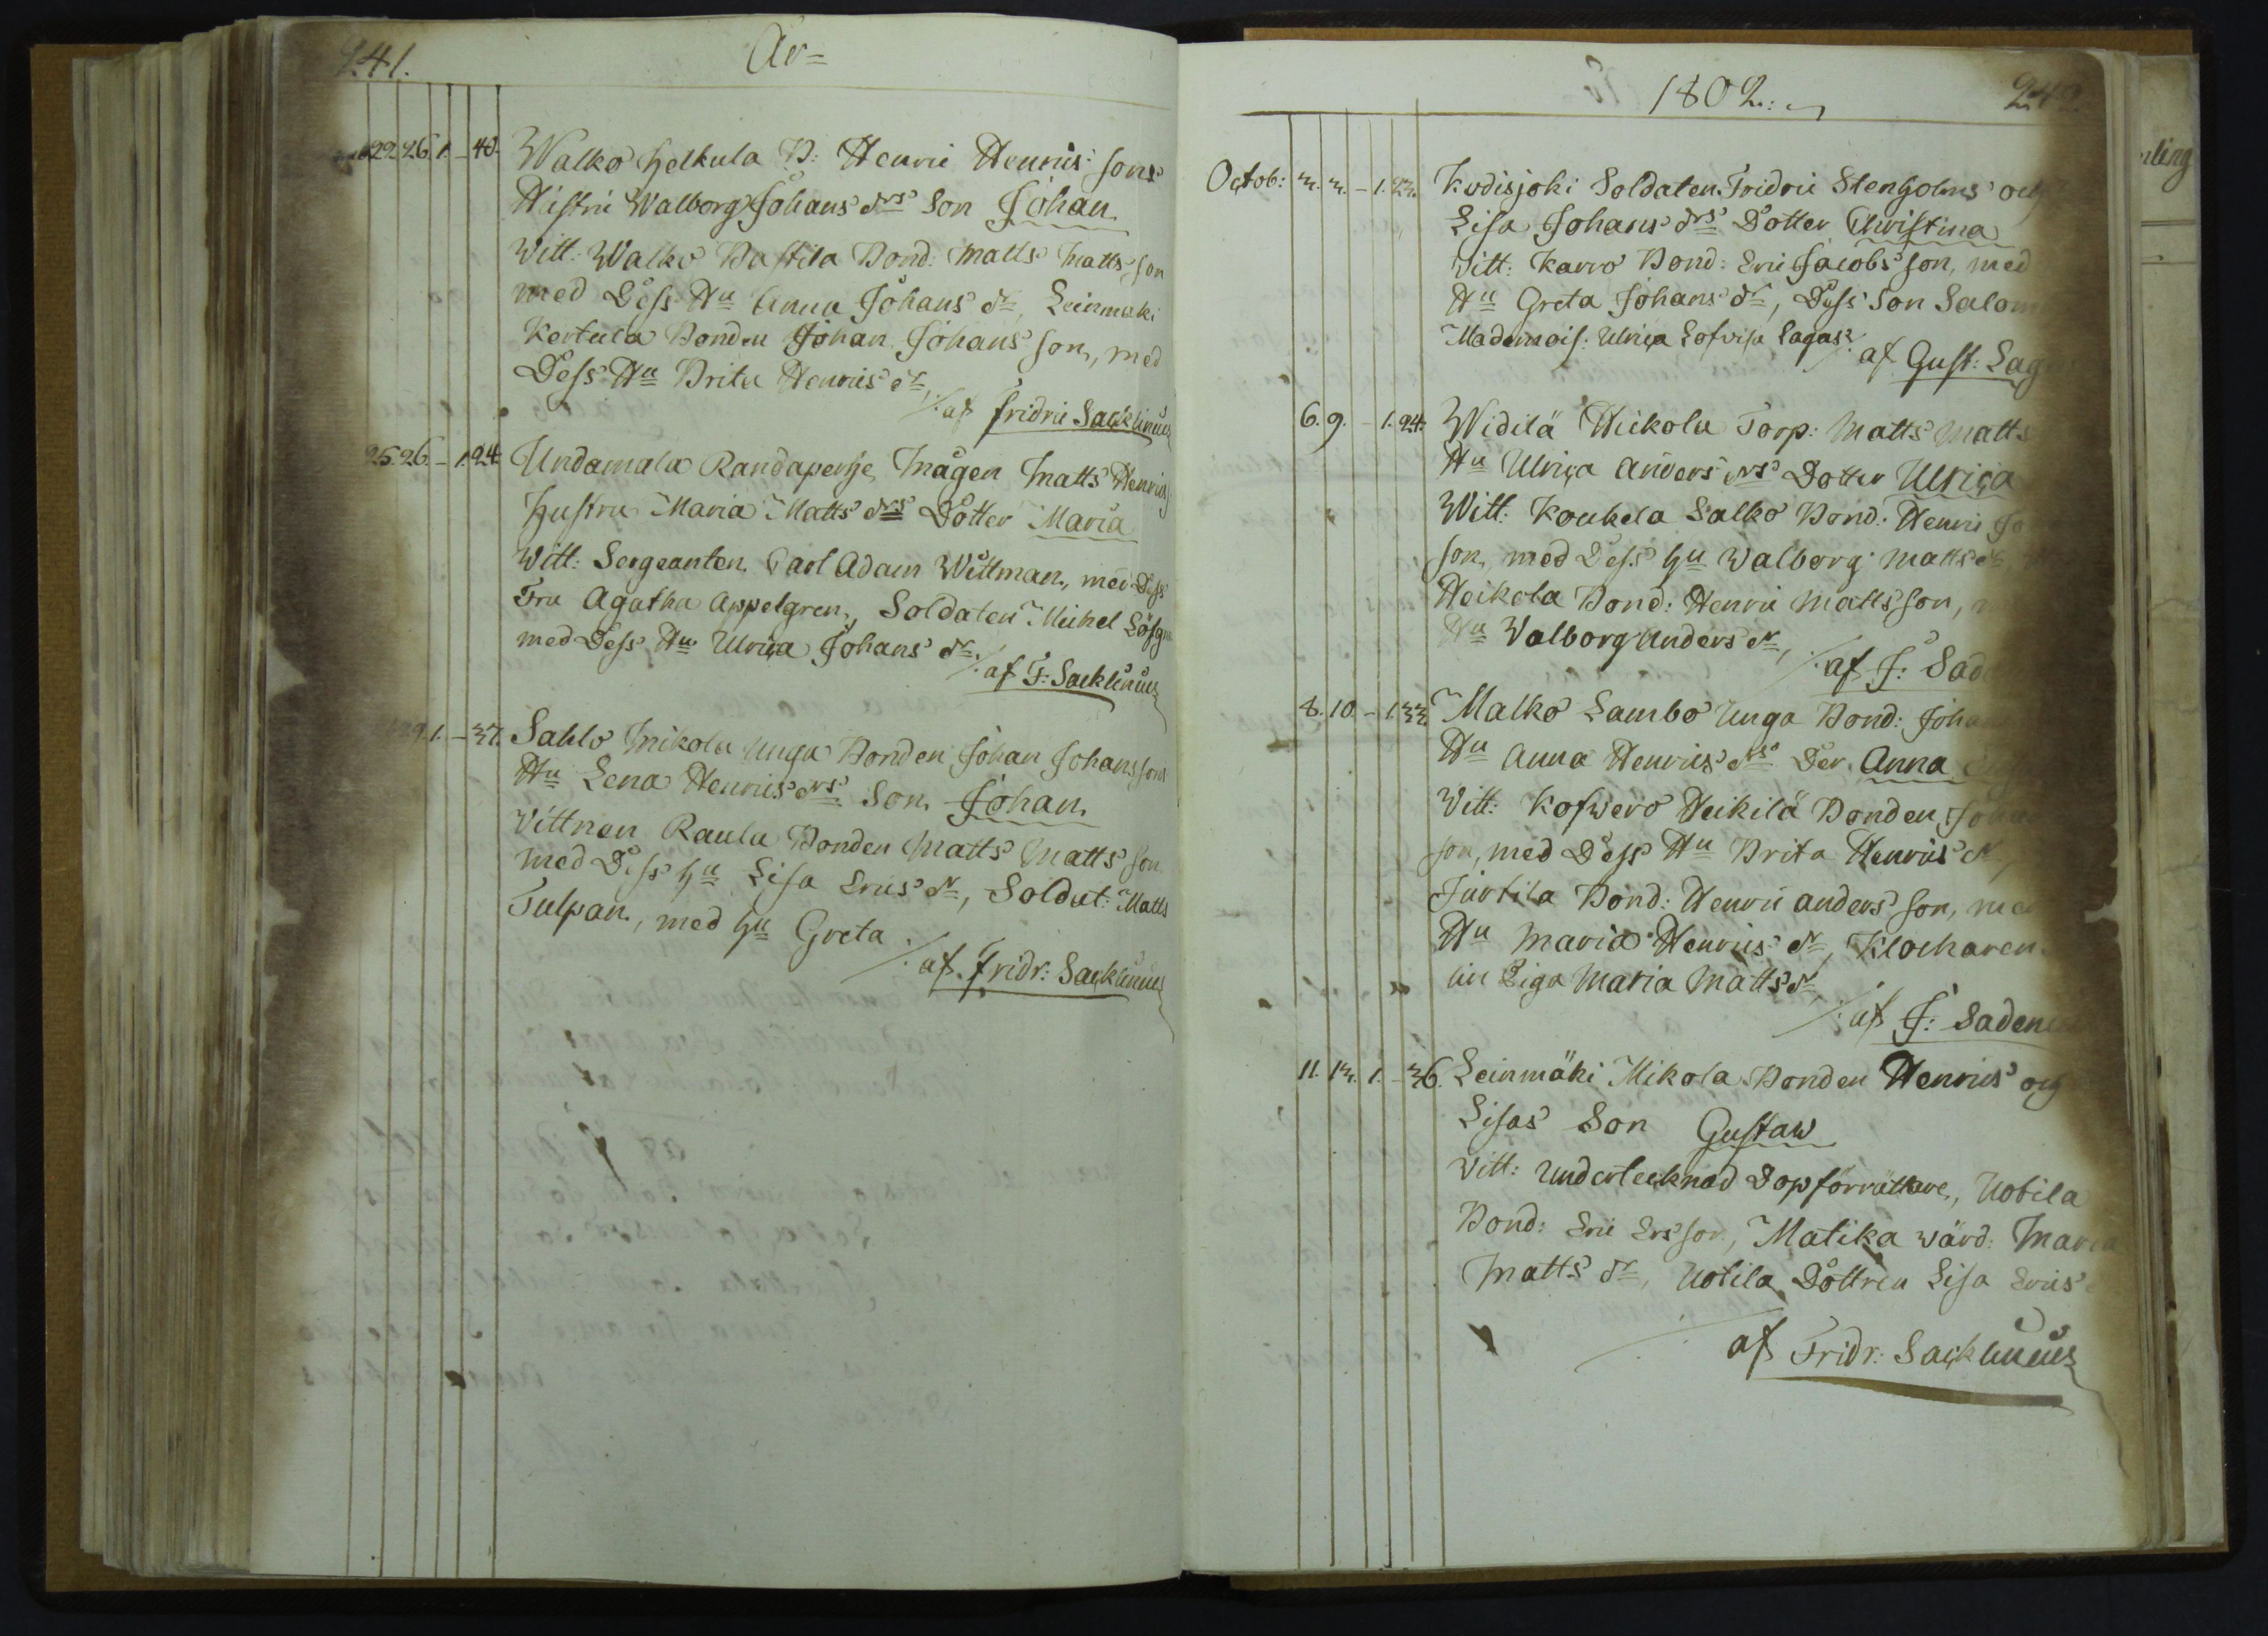 241.
År=
22. 26. 1. - 40. Walko Helkula B: Henric Henrics sons
Hustru Walborg Johans drs Son Johan
Witt: Walko Bustila Bond: Matts Matts son
med Dess Hu Anna Johans dr, Leinmäki
Kertula Bonden Johan Johans son, med
Dess Hu Brita Henrics dr,
/. af Fridric Sacklinius
25. 26. - 1. 24. Undamala Randaperhe Mågen Matts Henrics
Hustru Maria Matts drs Dotter Maria
Witt: Sergeanten Carl Adam Wittman, med Dess
Fru Agatha Appelgren, Soldaten Michel Löfgr
med Dess Hu Ulrica Johans dr.
/. af F: Sacklinius
29. 1. - 37. Sahlo Mikola Unga Bonden Johan Johans sons
Hu Lena Henrics drs Son Johan.
Vittnen Raula Bonden Matts Matts son
med Dess hu Lisa Erics dr, Soldat: Matts
Tulpan, med hu Greta
/. af Fridr: Sacklinius
1802.
242
Octob: 3. 3. - 1. 23. Kodisjoki Soldaten Fridric Stenholms och
Lisa Johans drs Dotter Christina
Witt: Karro Bond: Eric Jacobs son, med
Hu Greta Johans dr, Dess Son Salom
Mademois: Ulrica Lofvisa Lagus.
/. af Gust: Lag
6. 9. - 1. 24. Widilä Heikola Torp: Matts Matts
Hu Ulrica Anders drs Dotter Ulrica
Witt: Koukela Salko Bond: Henric Jo
son, med Dess hu Walborg Matts dr,
Heikola Bond: Henric Matts son,
Hu Walborg Anders dr,
/. af F: Sad
8. 10. - 1. 33. Malko Lambo Unga Bond: Joha
Hu Anna Henrics drs Der Anna
Vitt: Kofwero Heikilä Bonden Joh
son, med Dess Hu Brita Henrics dr,
Jurtila Bond: Henric Anders son, med
Hu Maria Henrics dr, Klockaren
Piga Maria Matts dr
/. af F: Sadeni
11. 13. 1. - 36. Leinmäki Mikola Bonden Henrics och
Lisas Son Gustaw
Vitt: Undertecknad Dopförrättare, Uotila
Bond: Eric Ers son, Matika wärd: Maria
Matts dr, Uotila Dottren Lisa Erics
/. af Fridr: Sacklinius
ling